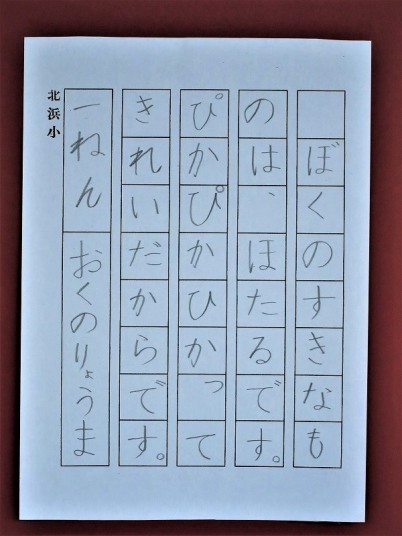 ぼくのすきなも
のは、ほたるです。
ぴかぴかひかって
きれいだからです。
一ねん おくのりょうま
北浜小